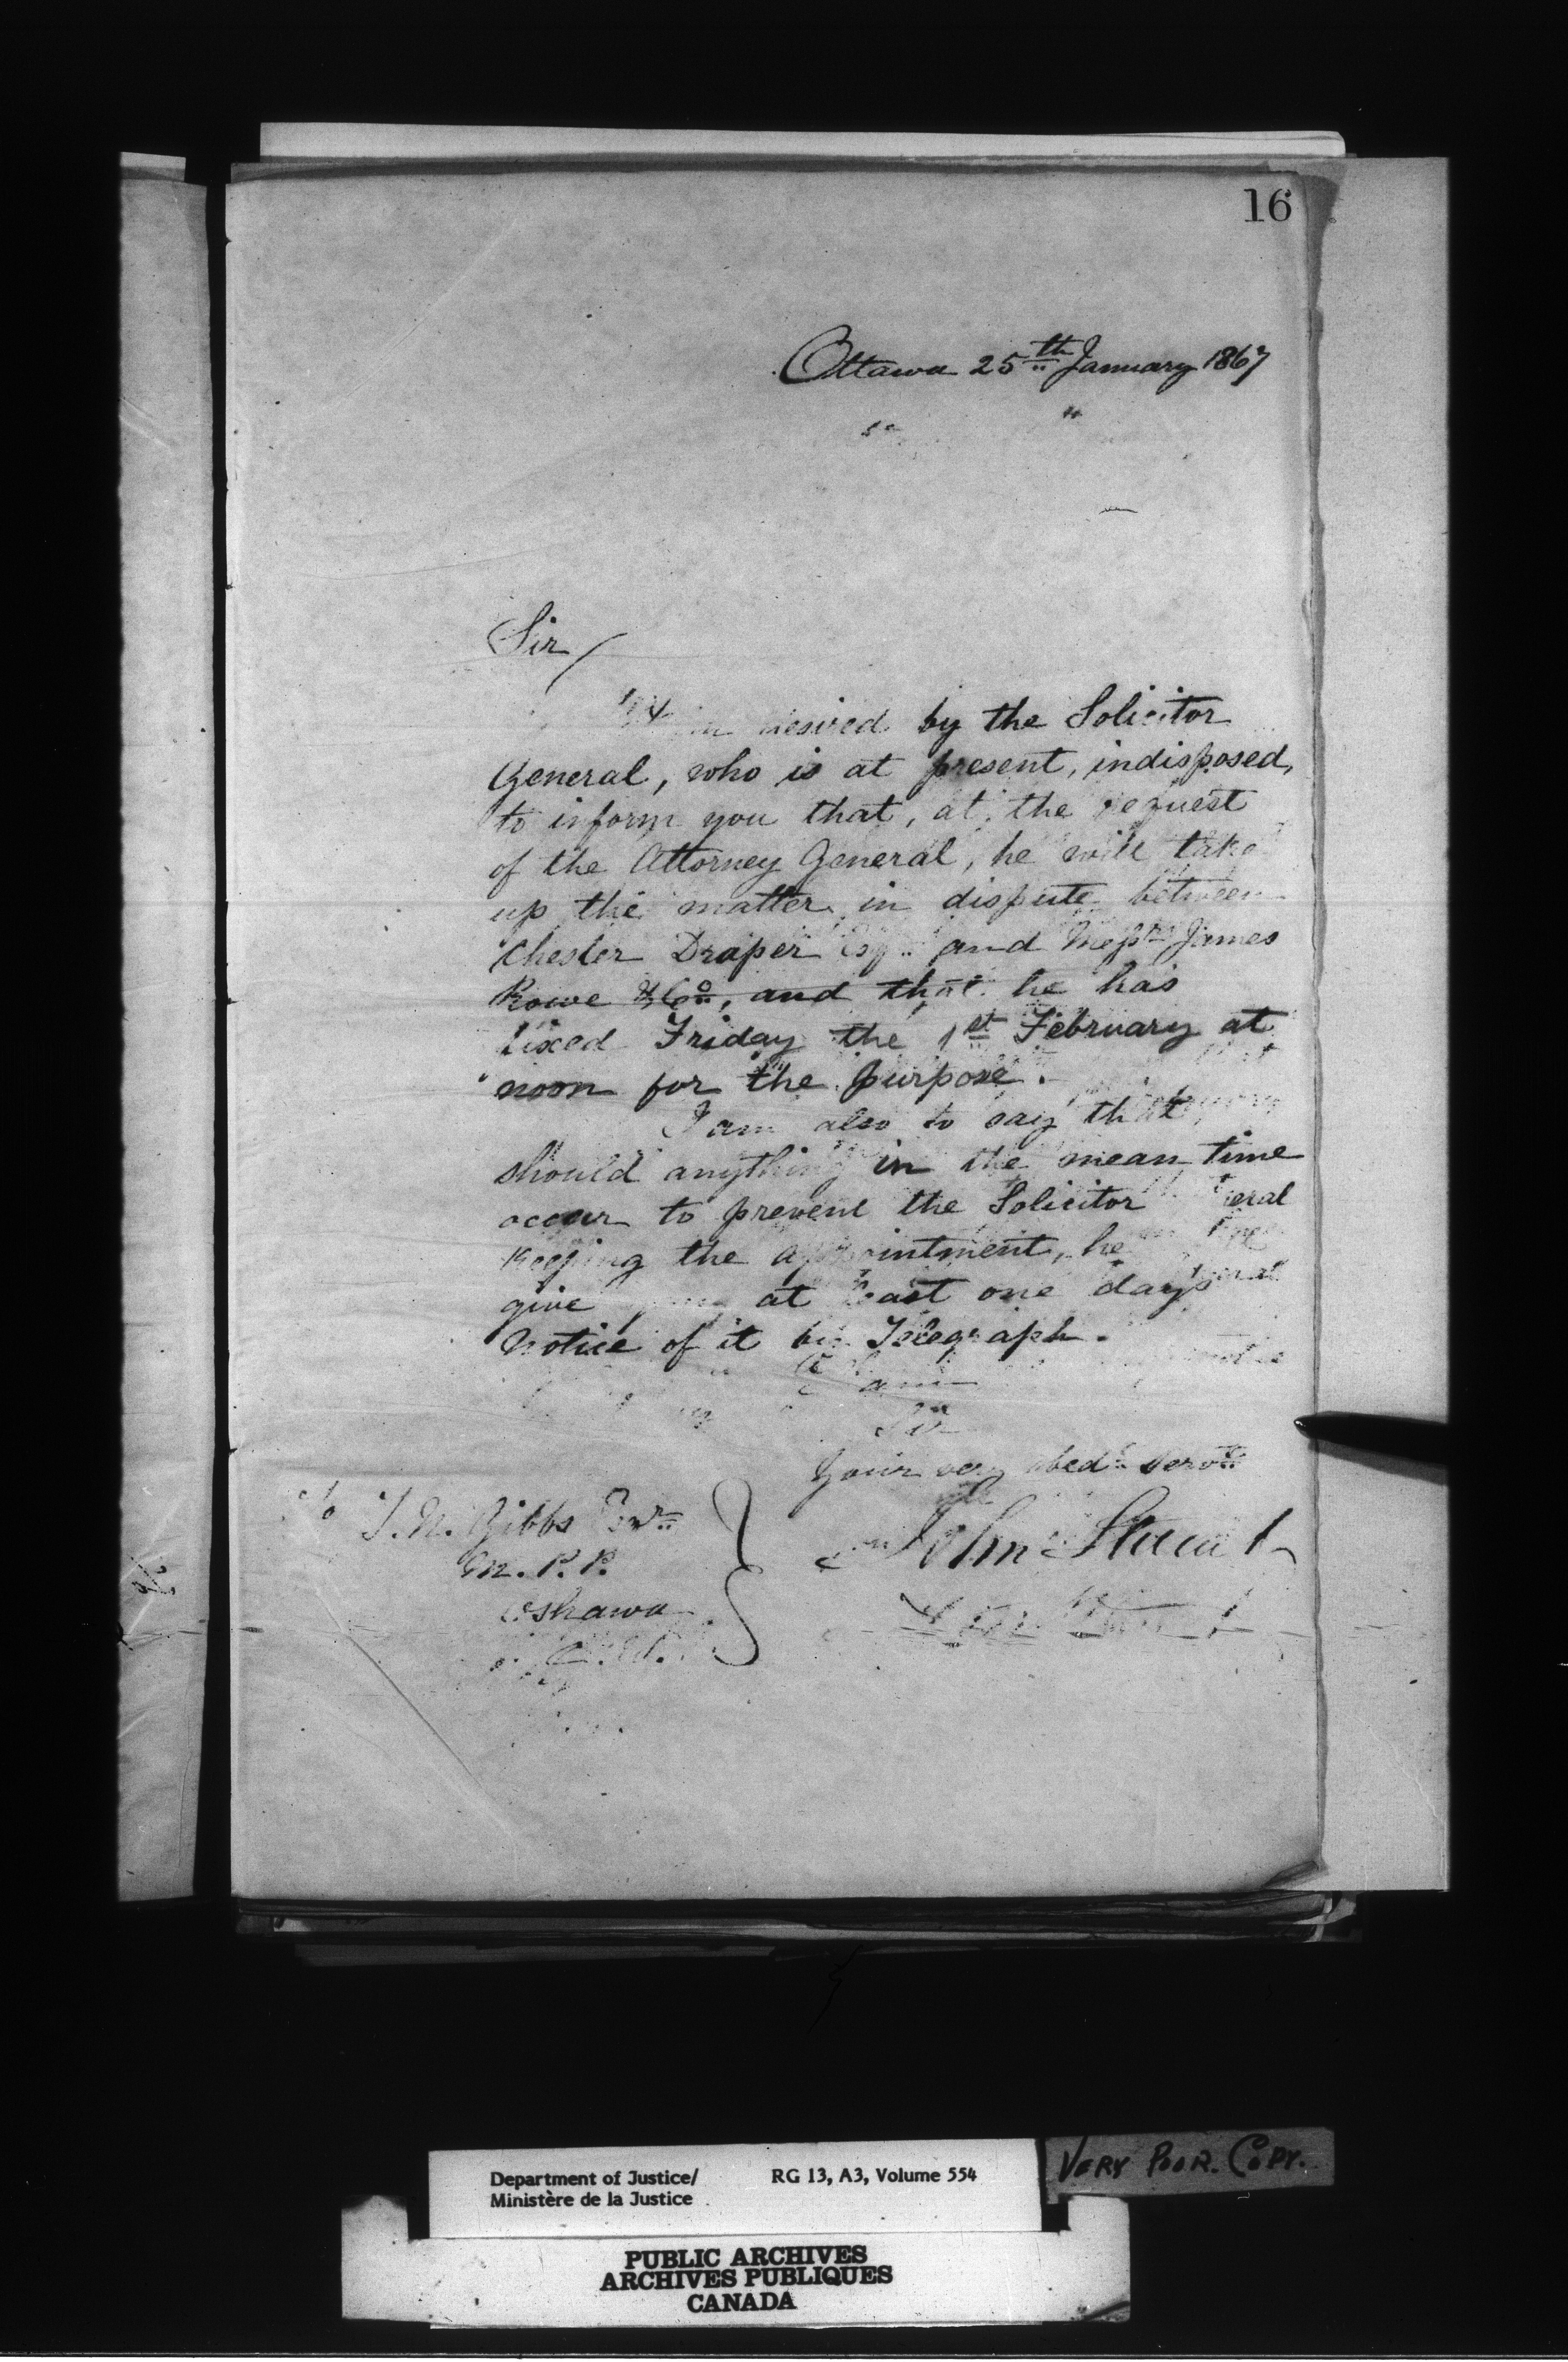 16
Ottawa 25th January 1867
Sir
desired by the Solicitor
General, who is at present, indisposed,
to inform you that, at the request
of the Attorney General, he will take
up the matter in dispute between
Chester Draper Esqr and Messrs James
Rowe & Co, and that he has
fixed Friday the 1st February at
noon for the purpose.
I am also to say that,
should anything in the mean time
occur to prevent the Solicitor General
keeping the appointment, he
give you at least one day's
notice of it by Telegraph.
I am
Sir
Your very obedt servt
John Stuart
To T. N. Gibbs Esqr
M. P. P.
Oshawa
Department of Justice/
Ministère de la Justice
RG 13, A3, Volume 554
VERY POOR. COPY.
PUBLIC ARCHIVES
ARCHIVES PUBLIQUES
CANADA